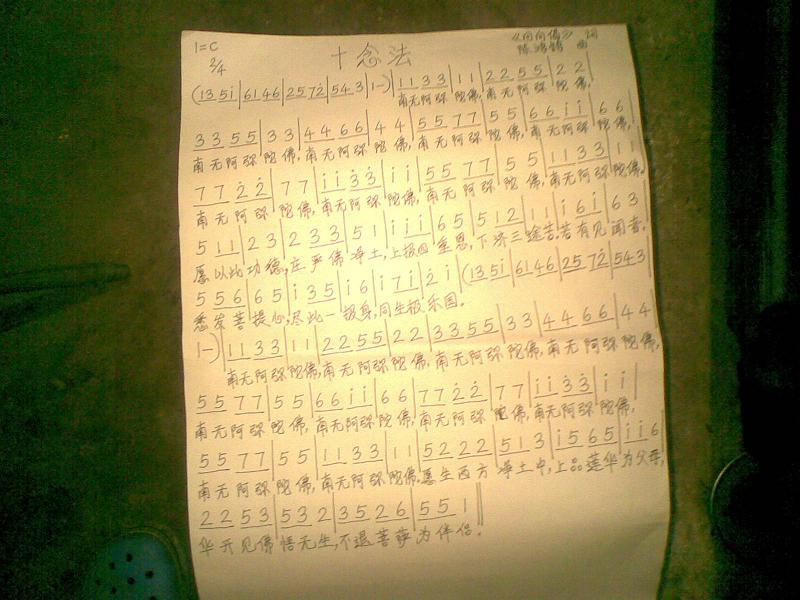 1=C 十念法 《回向偈》 词
2/4 陈 鸿 曲
(13 5i|61 46|25 72̇|54 3|1-)|11 33|11|22 55|22|
南无阿弥陀佛,南无阿弥陀佛,
33 55|33|44 66|44|55 77|55|66 ii|66|
南无阿弥陀佛,南无阿弥陀佛,南无阿弥陀佛,南无阿弥陀佛,
77 2̇2̇|77|ii 3̇3̇|ii|55 77|55|11 33|11|
南无阿弥陀佛,南无阿弥陀佛,南无阿弥陀佛,南无阿弥陀佛,
5 11|23|2 33|51|i ii|65|5 12|11|i 6i|63|
愿以此功德,庄严佛净土,上报四重恩,下济三途苦.若有见闻者,
5 56|65|i 35|i6|i 7i|2̇i|(13 5i|61 46|25 72̇|54 3|
悉发菩提心,尽此一报身,同生极乐国.
1-)|11 33|11|22 55|22|33 55|33|44 66|44
南无阿弥陀佛,南无阿弥陀佛,南无阿弥陀佛,南无阿弥陀佛,
55 77|55|66 ii|66|77 2̇2̇|77|ii 3̇3̇|ii|
南无阿弥陀佛,南无阿弥陀佛,南无阿弥陀佛,南无阿弥陀佛,
55 77|55|11 33|11|52 22|51 3|i5 65|ii 6|
南无阿弥陀佛,南无阿弥陀佛.愿生西方净土中,上品莲华为父母,
22 53|53 2|35 26|55 1||
华开见佛悟无生,不退菩萨为伴侣.